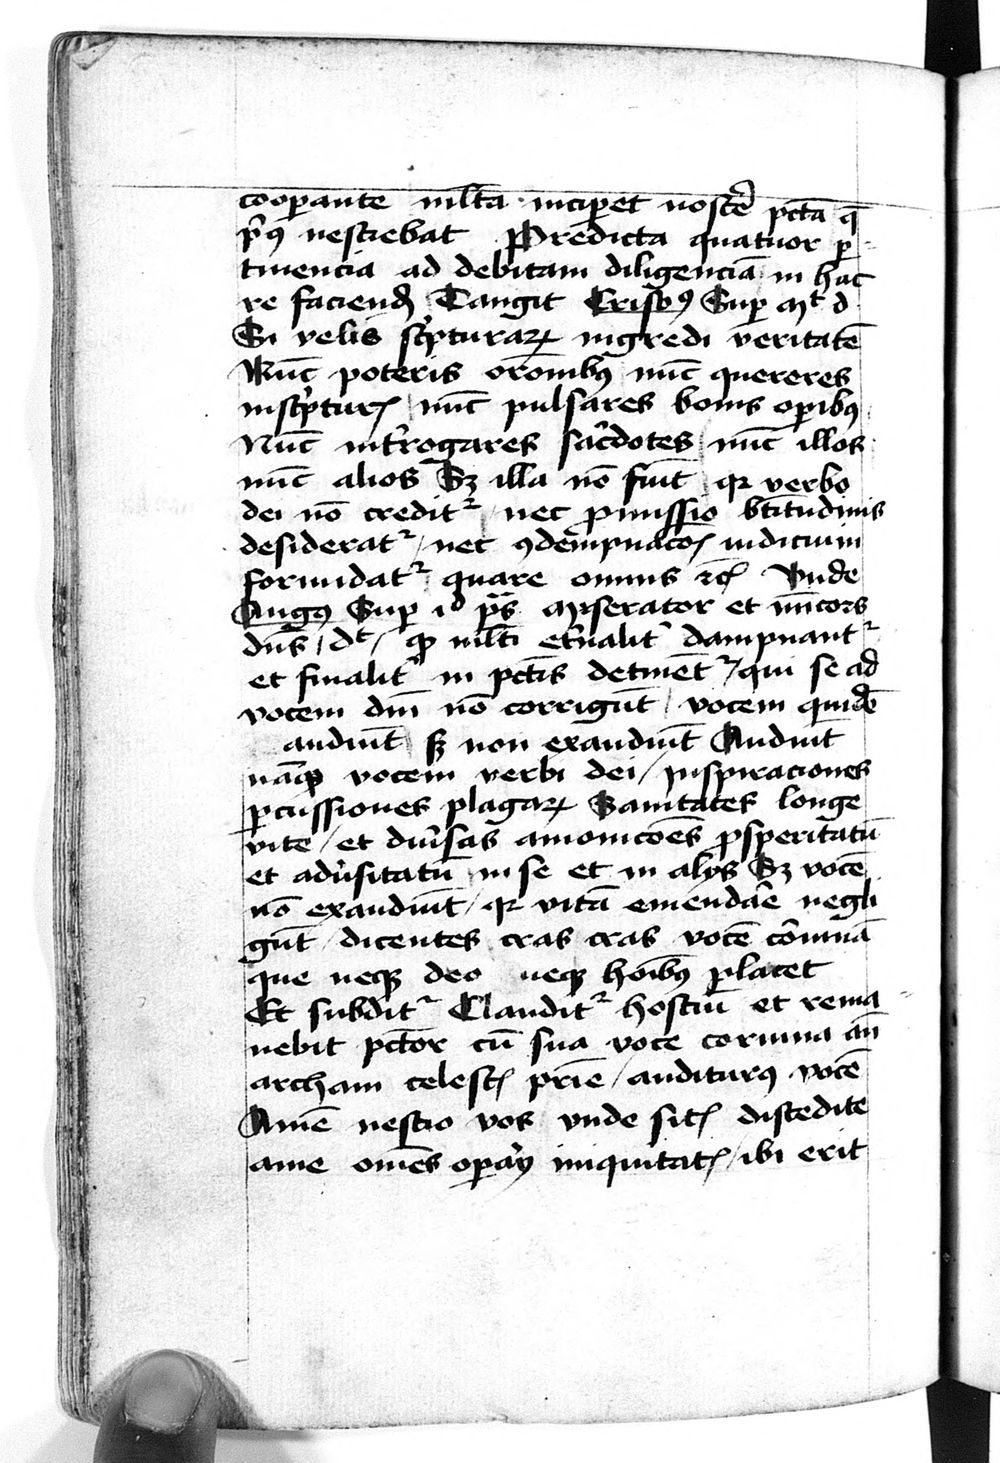 cooperante mlta incipiet noscẽ pctã q̃
pͥꝰ nesciebat Predicta quatuor per
tinencia ad debitam diligenciã in hac
re faciend Tangit Crisoꝰ Sup Mͭ d
Si velis scͥpturaꝝ ingredi veritatẽ
Nũc poteris orõnibꝰ nũc quereres
in scͥpturis nũc pulsares bonis oꝑibꝰ
Nũc int̾rogares sac̾dotes nũc illos
nũc alios Sꝫ illa nõ fiũt qꝛ verbo
dei nõ credit᷑ / nec ꝓmissio btitudinis
desiderat᷑ / nec ꝯdempnacõis iudicium
formidat᷑ quare omnis ⁊c̃ Vnde
Augꝰ Sup id pͣs Miserator et mi͠cors
dñs / dͭ / ꝙ mlti et̾nalit̾ dampnant᷑
et finalit̾ in pctis detinẽt᷑ / qui se ad
vocem dñi nõ corrigũt / vocem quidẽ
audiũt sꝫ non exaudiũt Audiũt
nãqꝫ vocem verbi dei / inspiraciones
ꝑcussiones plagaꝝ Sanitates longe
vite / et diu̾sas amonicões ꝓsperitatũ
et adu̾sitatũ in se et in alijs Sꝫ vocẽ
nõ exaudiũt / qꝛ vitã emendar̃e negli
gũt / dicentes cras cras vocẽ coruinã
que neqꝫ deo neqꝫ hoĩbꝰ placet
Et subdit᷑ Claudit᷑ hostiũ et rema
nebit pctor cũ sua voce coruina añ
archam celestis pr̃ie / auditurꝰ vocẽ
Amẽ nescio vos vnde sitis discedite
a me omẽs oꝑarij iniquitatis / ibi erit